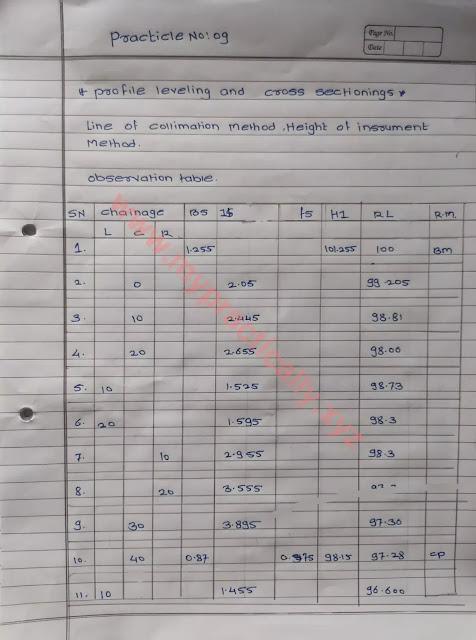 Practicle No:09
Page No.
Date
* profile leveling and cross sectionings *
Line of collimation method, Height of insrument
Method.
observation table.
SN chainage BS IS FS HI RL R.M.
L C R
1. 1.255 101.255 100 BM
2. 0 2.05 99.205
3. 10 2.445 98.81
4. 20 2.655 98.00
5. 10 1.525 98.73
6. 20 1.595 98.3
7. 10 2.955 98.3
8. 20 3.555
9. 30 3.895 97.30
10. 40 0.87 0.975 98.15 97.28 CP
11. 10 1.455 96.600
www.mypractically.xyz